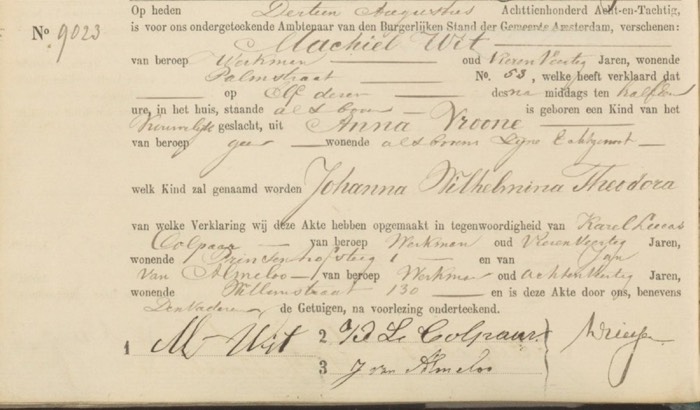 Op heden Dertien Augustus Achttienhonderd Acht-en-Tachtig,
No. 9023
is voor ons ondergeteekende Ambtenaar van den Burgerlijken Stand der Gemeente Amsterdam, verschenen:
Machiel Wit
van beroep Werkman oud Vierenveertig Jaren, wonende
Palmstraat No. 53, welke heeft verklaard dat
op Elf dezer des na middags ten half een
ure, in het huis, staande als boven is geboren een Kind van het
Vrouwelijk geslacht, uit Anna Vroone
van beroep geen wonende als boven Zijne Echtgenoot
welk Kind zal genaamd worden Johanna Wilhelmina Theodora
van welke Verklaring wij deze Akte hebben opgemaakt in tegenwoordigheid van Karel Lucas
Colpaar van beroep Werkman oud Vierenveertig Jaren,
wonende Prinsenhofsteeg 1 en van Jan
van Almeloo van beroep Werkman oud Achtenveertig Jaren,
wonende Willemstraat 130 en is deze Akte door ons, benevens
Den Vader en de Getuigen, na voorlezing onderteekend.
1 M Wit 2 L Colpaar
3 J van Almeloo